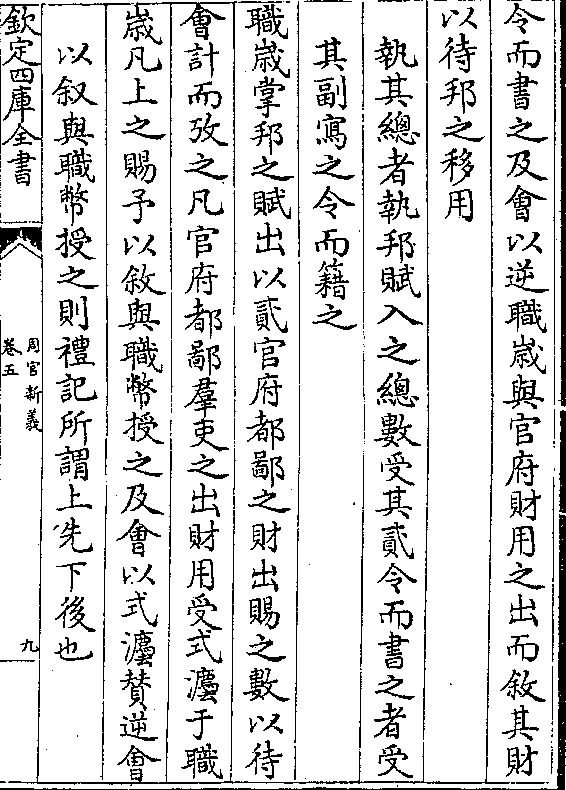 令而書之及會以逆職歳與官府財用之出而敘其財
以待邦之移用
執其總者執邦賦入之總數受其貳令而書之者受
其副寫之令而籍之
職歳掌邦之賦出以貳官府都鄙之財出賜之數以待
會計而攷之凡官府都鄙羣吏之出財用受式灋于職
歳凡上之賜予以敘與職幣授之及會以式灋賛逆會
以叙與職幣授之則禮記所謂上先下後也
欽定四庫全書
周官新義
卷五
九